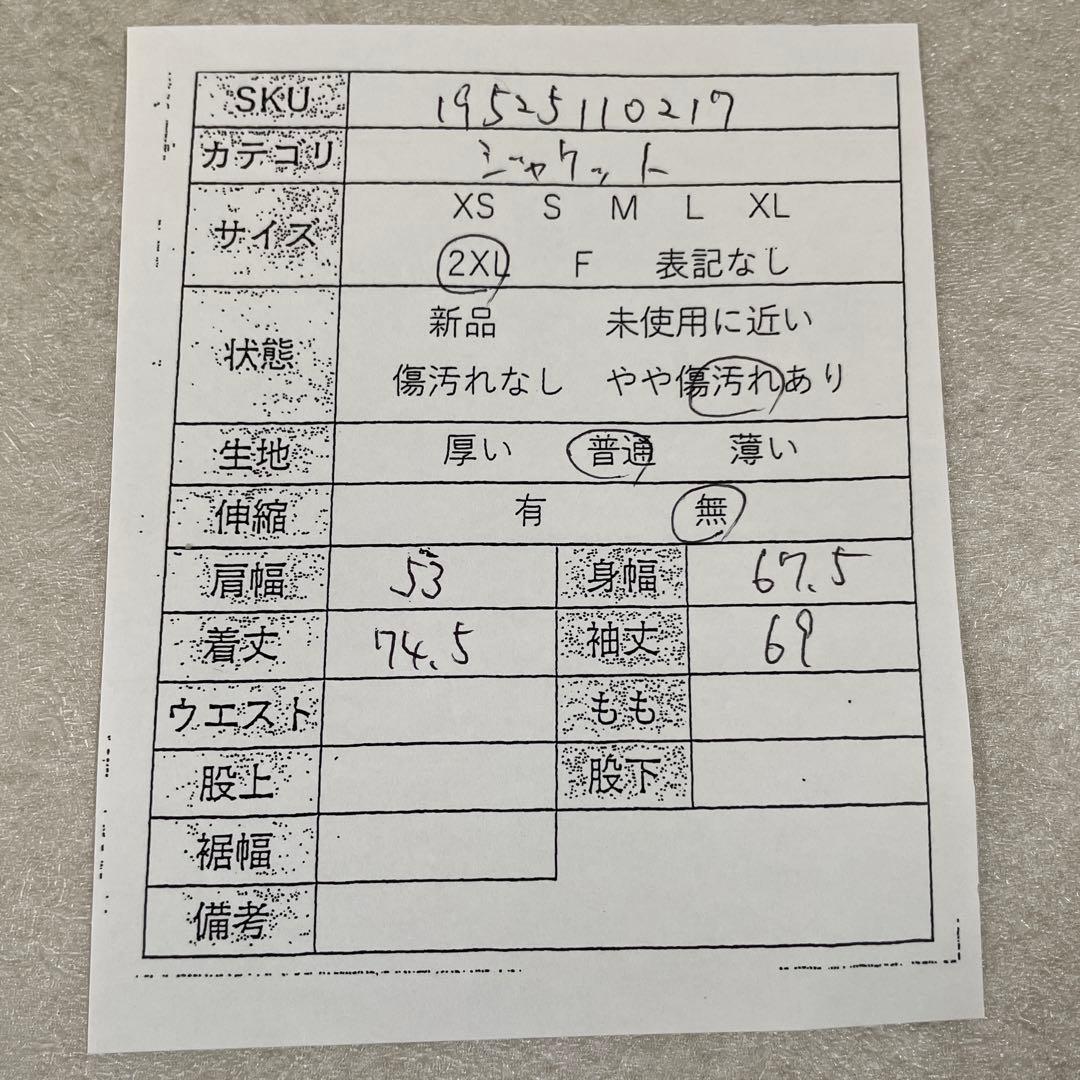 SKU 19525110217
カテゴリ ジャケット
サイズ XS S M L XL
2XL F 表記なし
状態 新品 未使用に近い
傷汚れなし やや傷汚れあり
生地 厚い 普通 薄い
伸縮 有 無
肩幅 53 身幅 67.5
着丈 74.5 袖丈 69
ウエスト もも
股上 股下
裾幅
備考